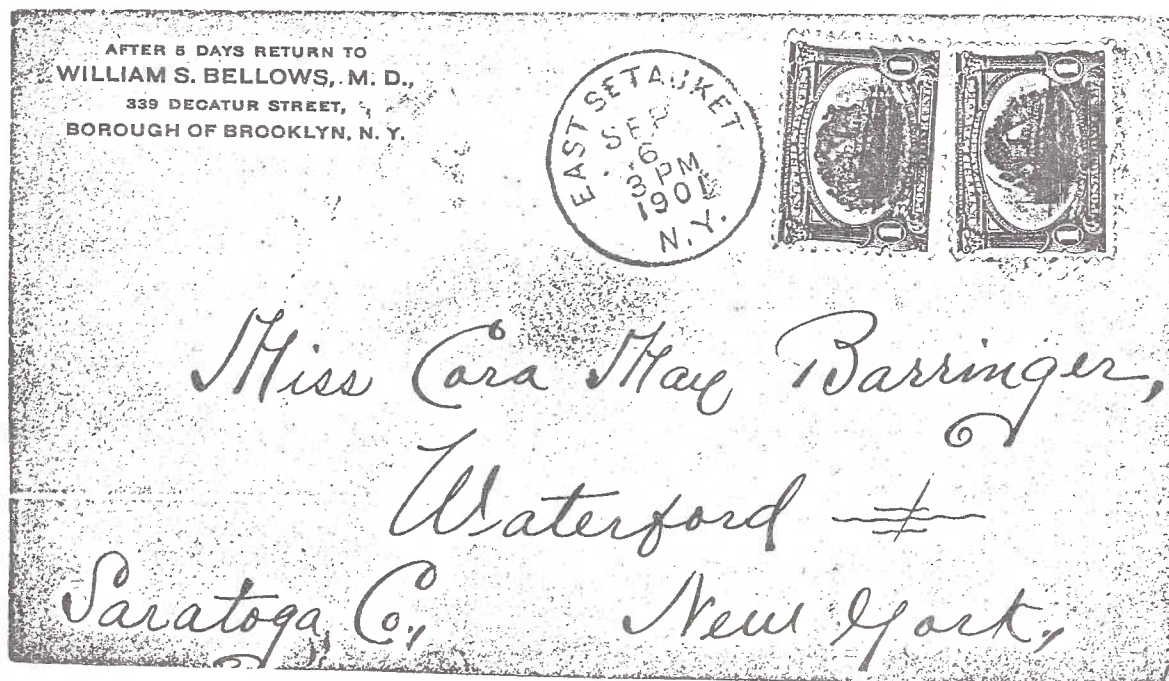 AFTER 5 DAYS RETURN TO
WILLIAM S. BELLOWS, M. D.,
339 DECATUR STREET,
BOROUGH OF BROOKLYN, N. Y.
EAST SETAUKET
SEP
6
3 PM
1901
N.Y.
1 1
1 1
Miss Cora May Barringer,
Waterford
Saratoga Co., New York,